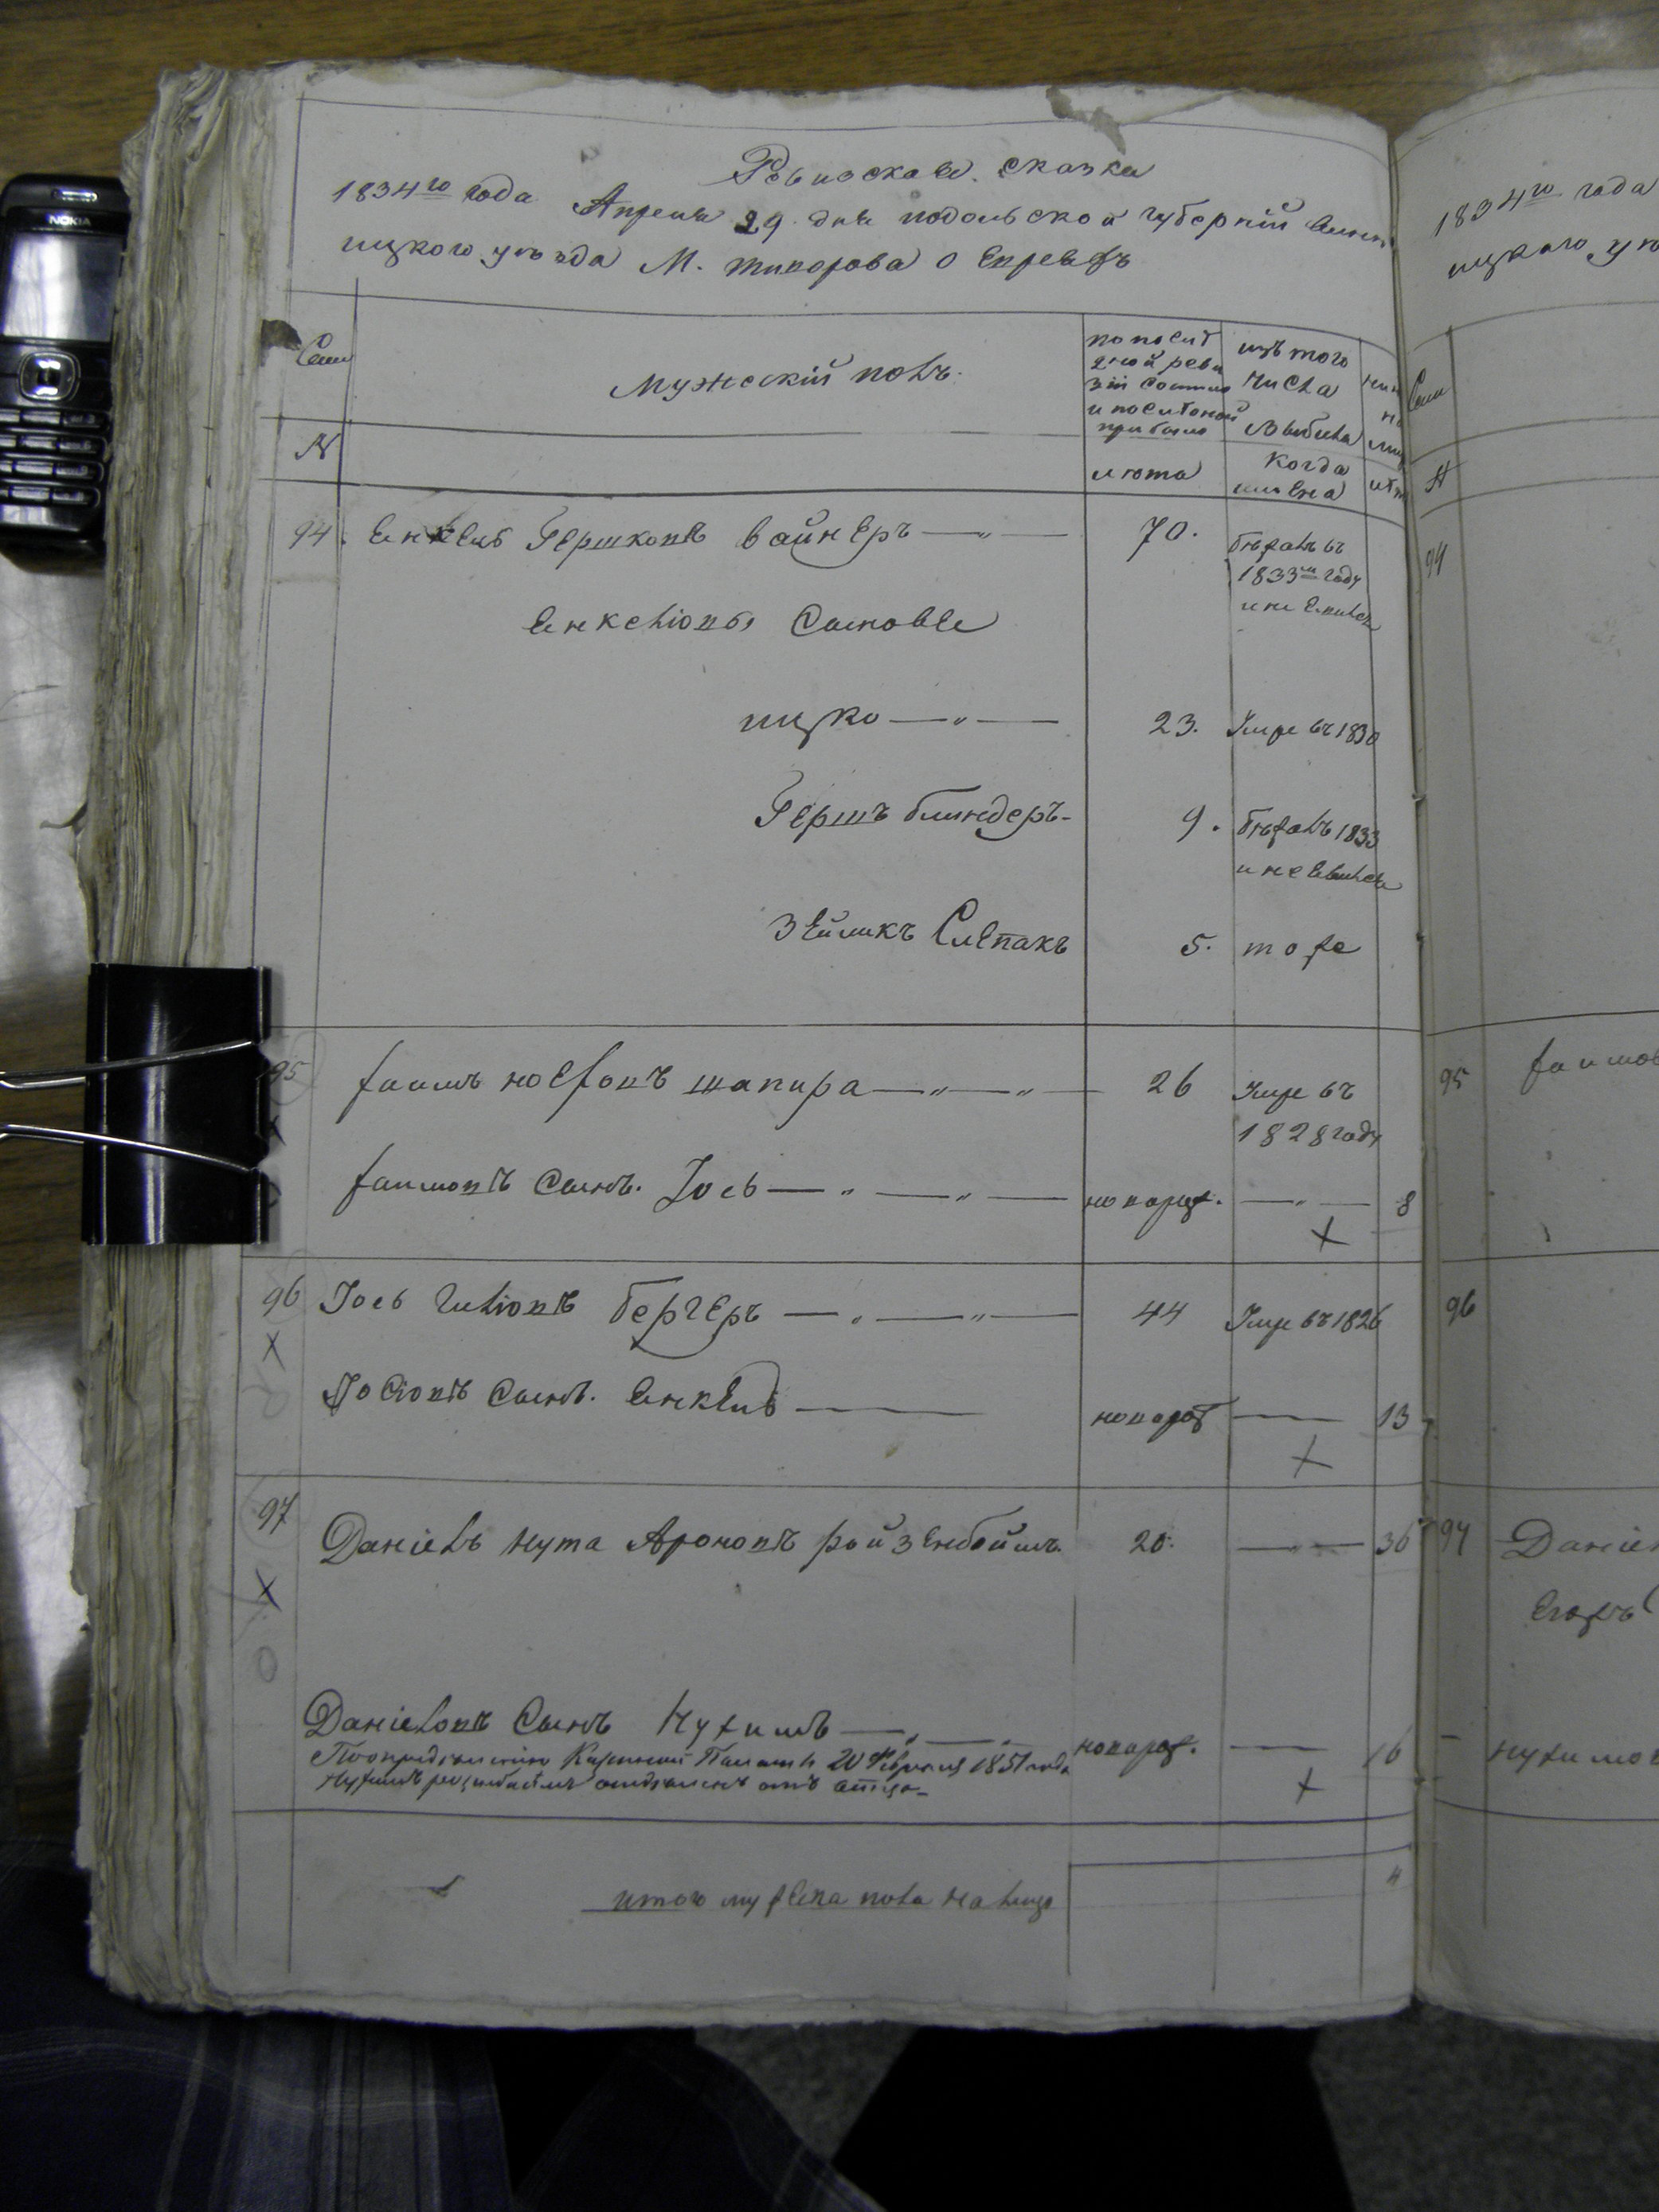 NOKIA
Ревизская сказка
1834го года Апреля 29 дня подольской губерній винн
ицкого уъзда М. тиворова о Евреяхъ
Семи
мужескій полъ.
по послѣ
дной реви
зіи состояло
и послѣ оной
прибыло
изъ того
числа
выбыло
№
лѣта
когда
именно
94. Янкель Гершковъ вайнеръ — „ —
70.
бѣжалъ въ
1833м году
и не явился
Янкеліовы Сыновья
ицко — „ —
23. Умре въ 1830
Гершъ блиндеръ-
9. бѣжалъ 1833
и не явился
Зейликъ Слепакъ
5. тоже
95 хаимъ шапира — „ — „ —
26 Умре въ
1828 году
хаимовъ Сынъ. Іось — „ — „ —
новорож. — „ — 8
96 Іось бергеръ — „ — „ —
44 Умре въ 1826
Іосіовъ Сынъ. Янкель —
новорож — 13
97
Даніель нута Ароновъ ройзенбоймъ.
20. — „ — 36
Даніеловъ Сынъ Нухимъ — „ — „
новорож. — 16
По предписанію Казенной Палаты 20 Февраля 1851 года
Нухимъ розинбаймъ отдѣленъ отъ отца-
итого мужеска пола налицо
4
1834го года
ицкого уѣ
Семи
№
94
95 хаимов
96
97 Даніел
нухимов